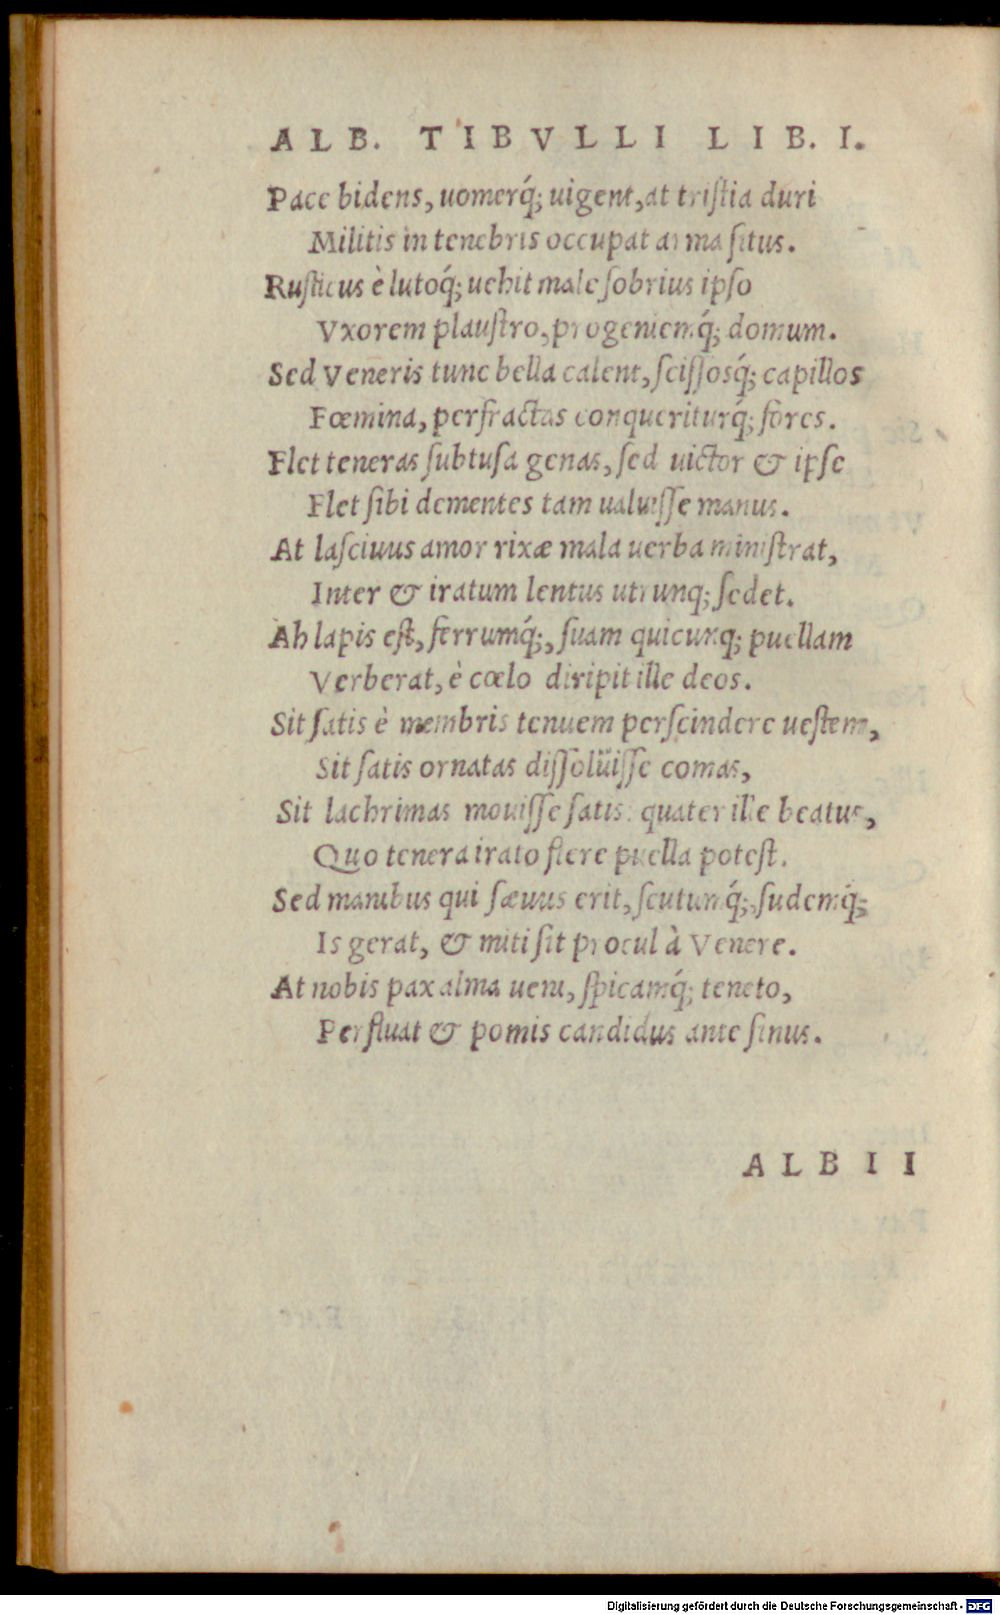 ALB. TIBVLLI LIB. I.
Pace bidens, uomerq́; uigent, at tristia duri
Militis in tenebris occupat arma situs.
Rusticus è lutoq́; uehit male sobrius ipso
Vxorem plaustro, progeniemq́; domum.
Sed Veneris tunc bella calent, scissosq́; capillos
Fœmina, perfractas conqueriturq́; fores.
Flet teneras subtusa genas, sed uictor & ipse
Flet sibi dementes tam ualuisse manus.
At lasciuus amor rixæ mala uerba ministrat,
Inter & iratum lentus utrunq; sedet.
Ah lapis est, ferrumq́;, suam quicunq; puellam
Verberat, è cœlo diripit ille deos.
Sit satis è membris tenuem perscindere uestem,
Sit satis ornatas dissolüisse comas,
Sit lachrimas mouisse satis: quater ille beatus,
Quo tenera irato flere puella potest.
Sed manibus qui sæuus erit, scutumq́;, sudemq́;
Is gerat, & miti sit procul à Venere.
At nobis pax alma ueni, spicamq́; teneto,
Perfluat & pomis candidus ante sinus.
ALBII
Digitalisierung gefördert durch die Deutsche Forschungsgemeinschaft - DFG